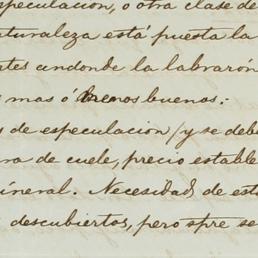 especulacion, ó otra clase de
aturaleza está puesta la
tes andonde la labrarón
mas ó menos buenos:
de especulacion /y se debe
ra de cuele, precio estable
ineral. Necesidad de est
descubiertos, pero spre se